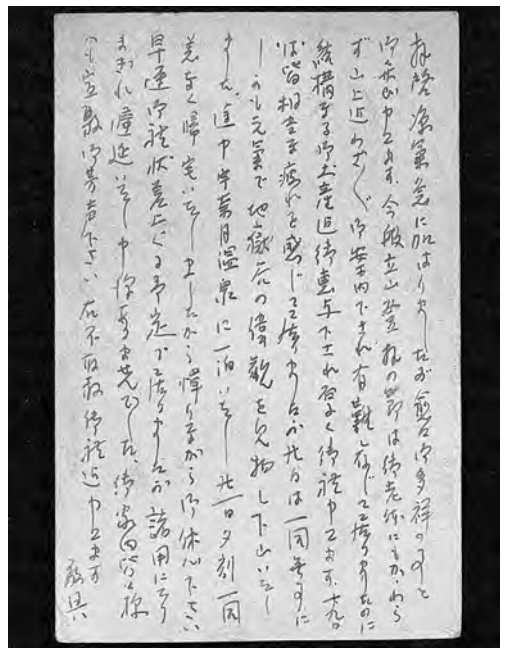 拝啓 涼気急に加はりましたが愈々御多祥の事と
御慶び申上ます、今般立山登拝の節は御老体にもかゝわら
ず山上迄わざ〱御案内下され有難く存じて居りましたのに
結構なる御土産迄御恵与下され厚く御礼申上ます、十九日
は皆相当疲れを感じて居りましたが廿日は一同無事に
しかも元気で地獄谷の偉観を見物し下山いたし
ました、途中宇奈月温泉に一泊いたし廿一日夕刻一同
恙なく帰宅いたしましたから憚りながら御休心下さい
早速御礼状差上ぐる予定で居りましたが諸用にとり
まぎれ遅延いたし申訳ありません でした、御家内皆々様
へも宜敷御芳声下さい 右不取敢御礼迄申上ます
敬具